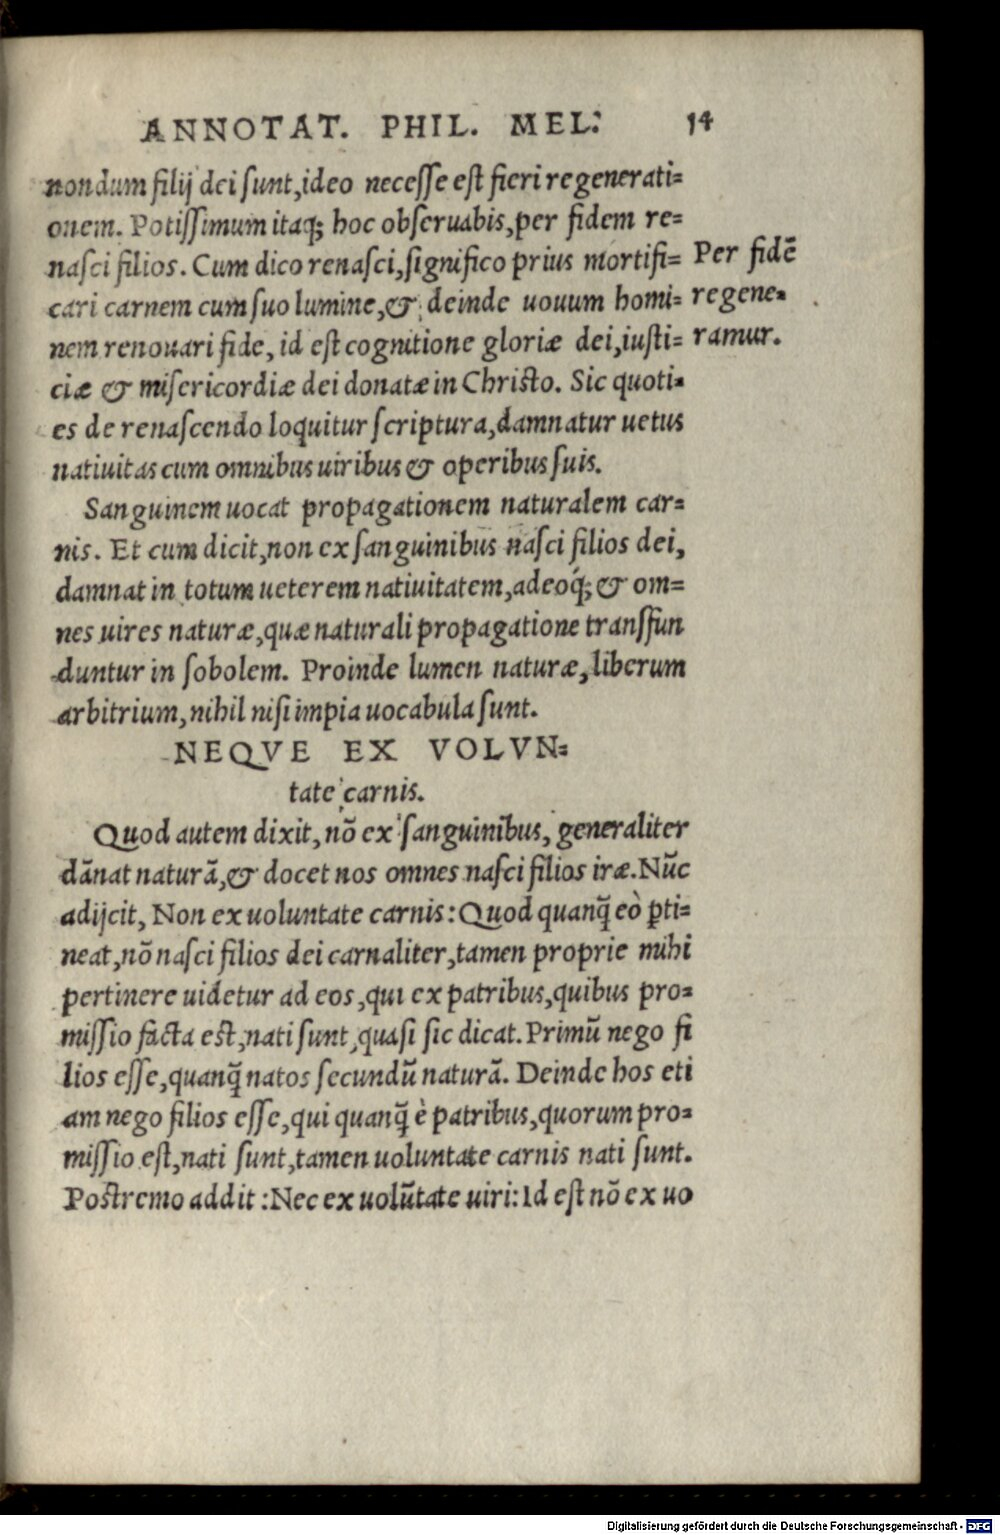 ANNOTAT. PHIL. MEL. 14
nondum filij dei sunt,ideo necesse est fieri regenerati=
onem. Potissimum itaq; hoc obseruabis,per fidem re=
nasci filios. Cum dico renasci,significo prius mortifi=
Per fidẽ
cari carnem cum suo lumine,& deinde nouum homi=
regene=
nem renouari fide, id est cognitione gloriæ dei,iusti=
ramur.
ciæ & misericordiæ dei donatæ in Christo. Sic quoti=
es de renascendo loquitur scriptura,damnatur uetus
natiuitas cum omnibus uiribus & operibus suis.
Sanguinem uocat propagationem naturalem car=
nis. Et cum dicit,non ex sanguinibus nasci filios dei,
damnat in totum ueterem natiuitatem,adeoq́; & om=
nes uires naturæ,quæ naturali propagatione transfun
duntur in sobolem. Proinde lumen naturæ,liberum
arbitrium,nihil nisi impia uocabula sunt.
NEQVE EX VOLVN=
tate carnis.
Quod autem dixit, nõ ex sanguinibus, generaliter
dãnat naturã,& docet nos omnes nasci filios iræ. Nũc
adijcit, Non ex uoluntate carnis: Quod quanq̃ eò ꝑti=
neat,nõ nasci filios dei carnaliter,tamen proprie mihi
pertinere uidetur ad eos,qui ex patribus,quibus pro=
missio facta est,nati sunt,quasi sic dicat. Primũ nego fi
lios esse,quanq̃ natos secundũ naturã. Deinde hos eti
am nego filios esse,qui quanq̃ è patribus,quorum pro=
missio est,nati sunt,tamen uoluntate carnis nati sunt.
Postremo addit :Nec ex uolũtate uiri: Id est nõ ex uo
Digitalisierung gefördert durch die Deutsche Forschungsgemeinschaft - DFG